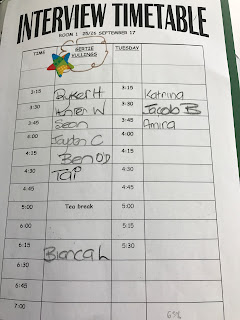 INTERVIEW TIMETABLE
ROOM 1 25/26 SEPTEMBER 17
TIME GERTIE TUESDAY
VULLINGS
3:15 H 3:15 Katrina
3:30 Karen W 3:30 Jacob B
3:45 Sean 3:45 Amira
4:00 Jayden C 4:00
4:15 4:15
Ben O'D
4:30 Tai 4:30
4:45 4:45
5:00 Tea break 5:00
6:00 5:15
6:15 5:30
Bianca L
6:30
6:45
7:00